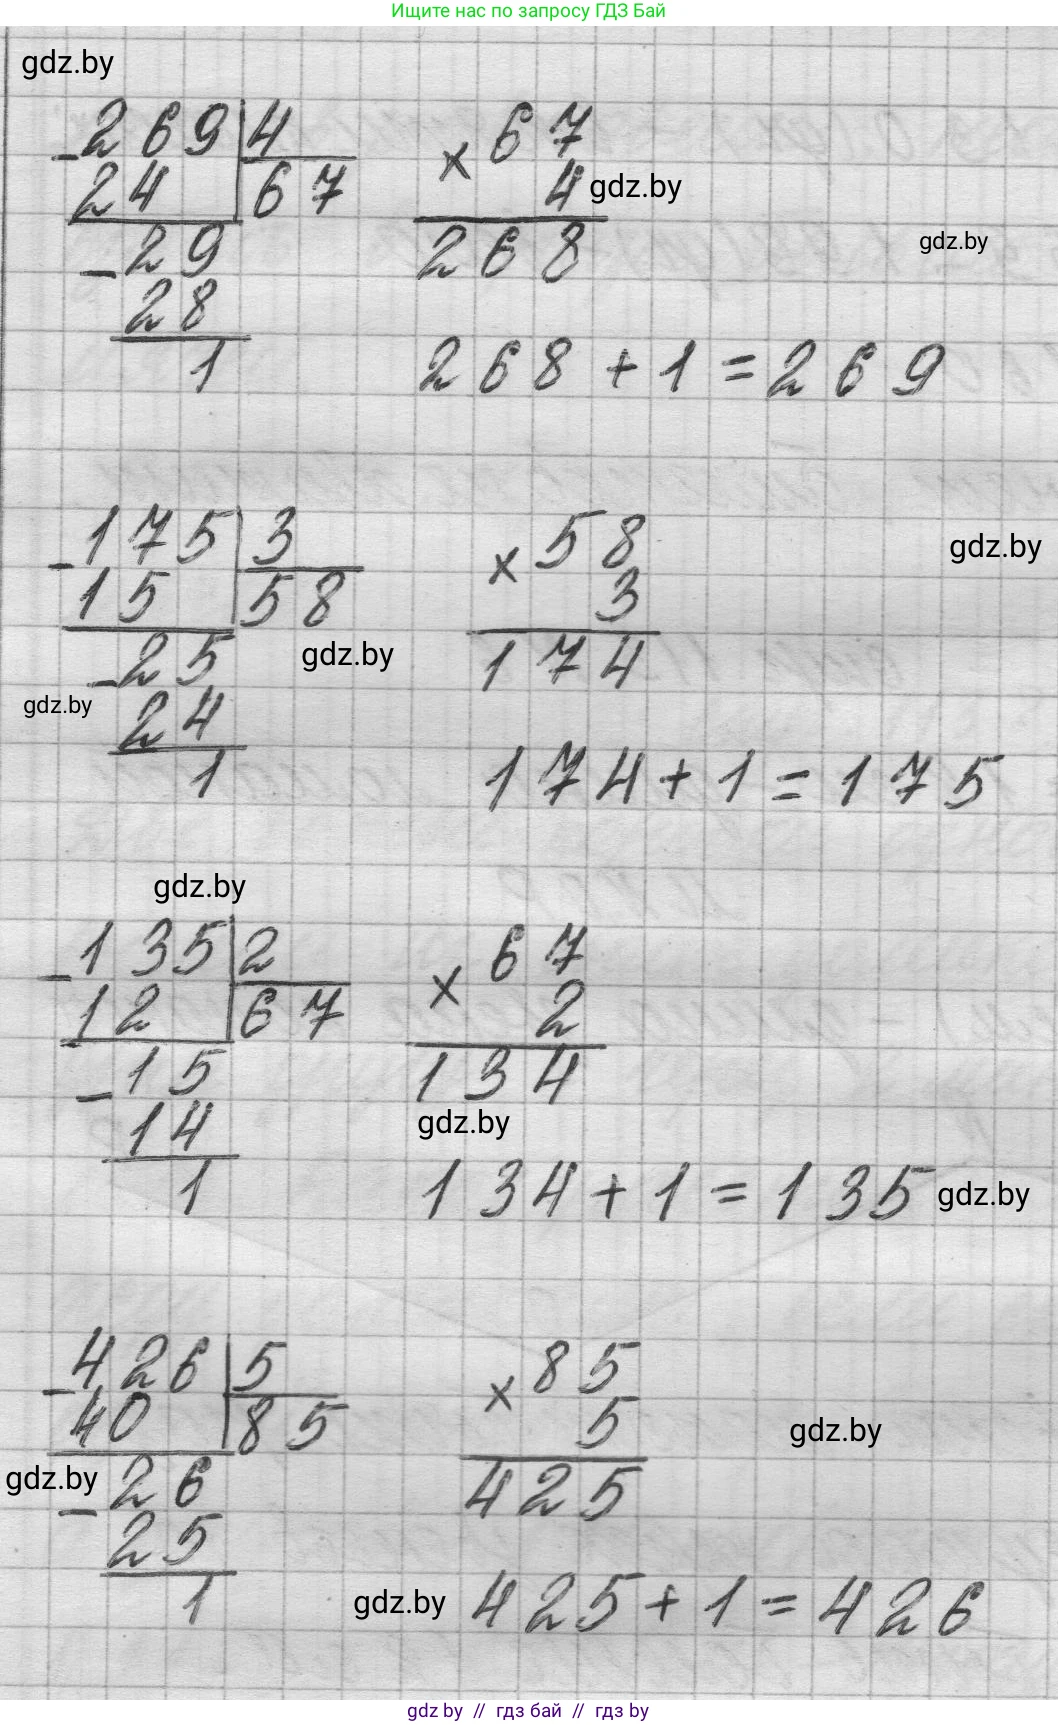 Ищите нас по запросу ГДЗ Бай
gdz.by
-269|4
24 67
-29
28
1
×67
4
gdz.by
268
gdz.by
268+1=269
-175|3
15 58
-25
24
1
×58
3
174
gdz.by
gdz.by
gdz.by
174+1=175
gdz.by
-135|2
12 67
-15
14
1
×67
2
134
gdz.by
134+1=135
gdz.by
-426|5
40 85
-26
25
1
×85
5
425
gdz.by
gdz.by
gdz.by
425+1=426
gdz by // гдз бай // гдз by